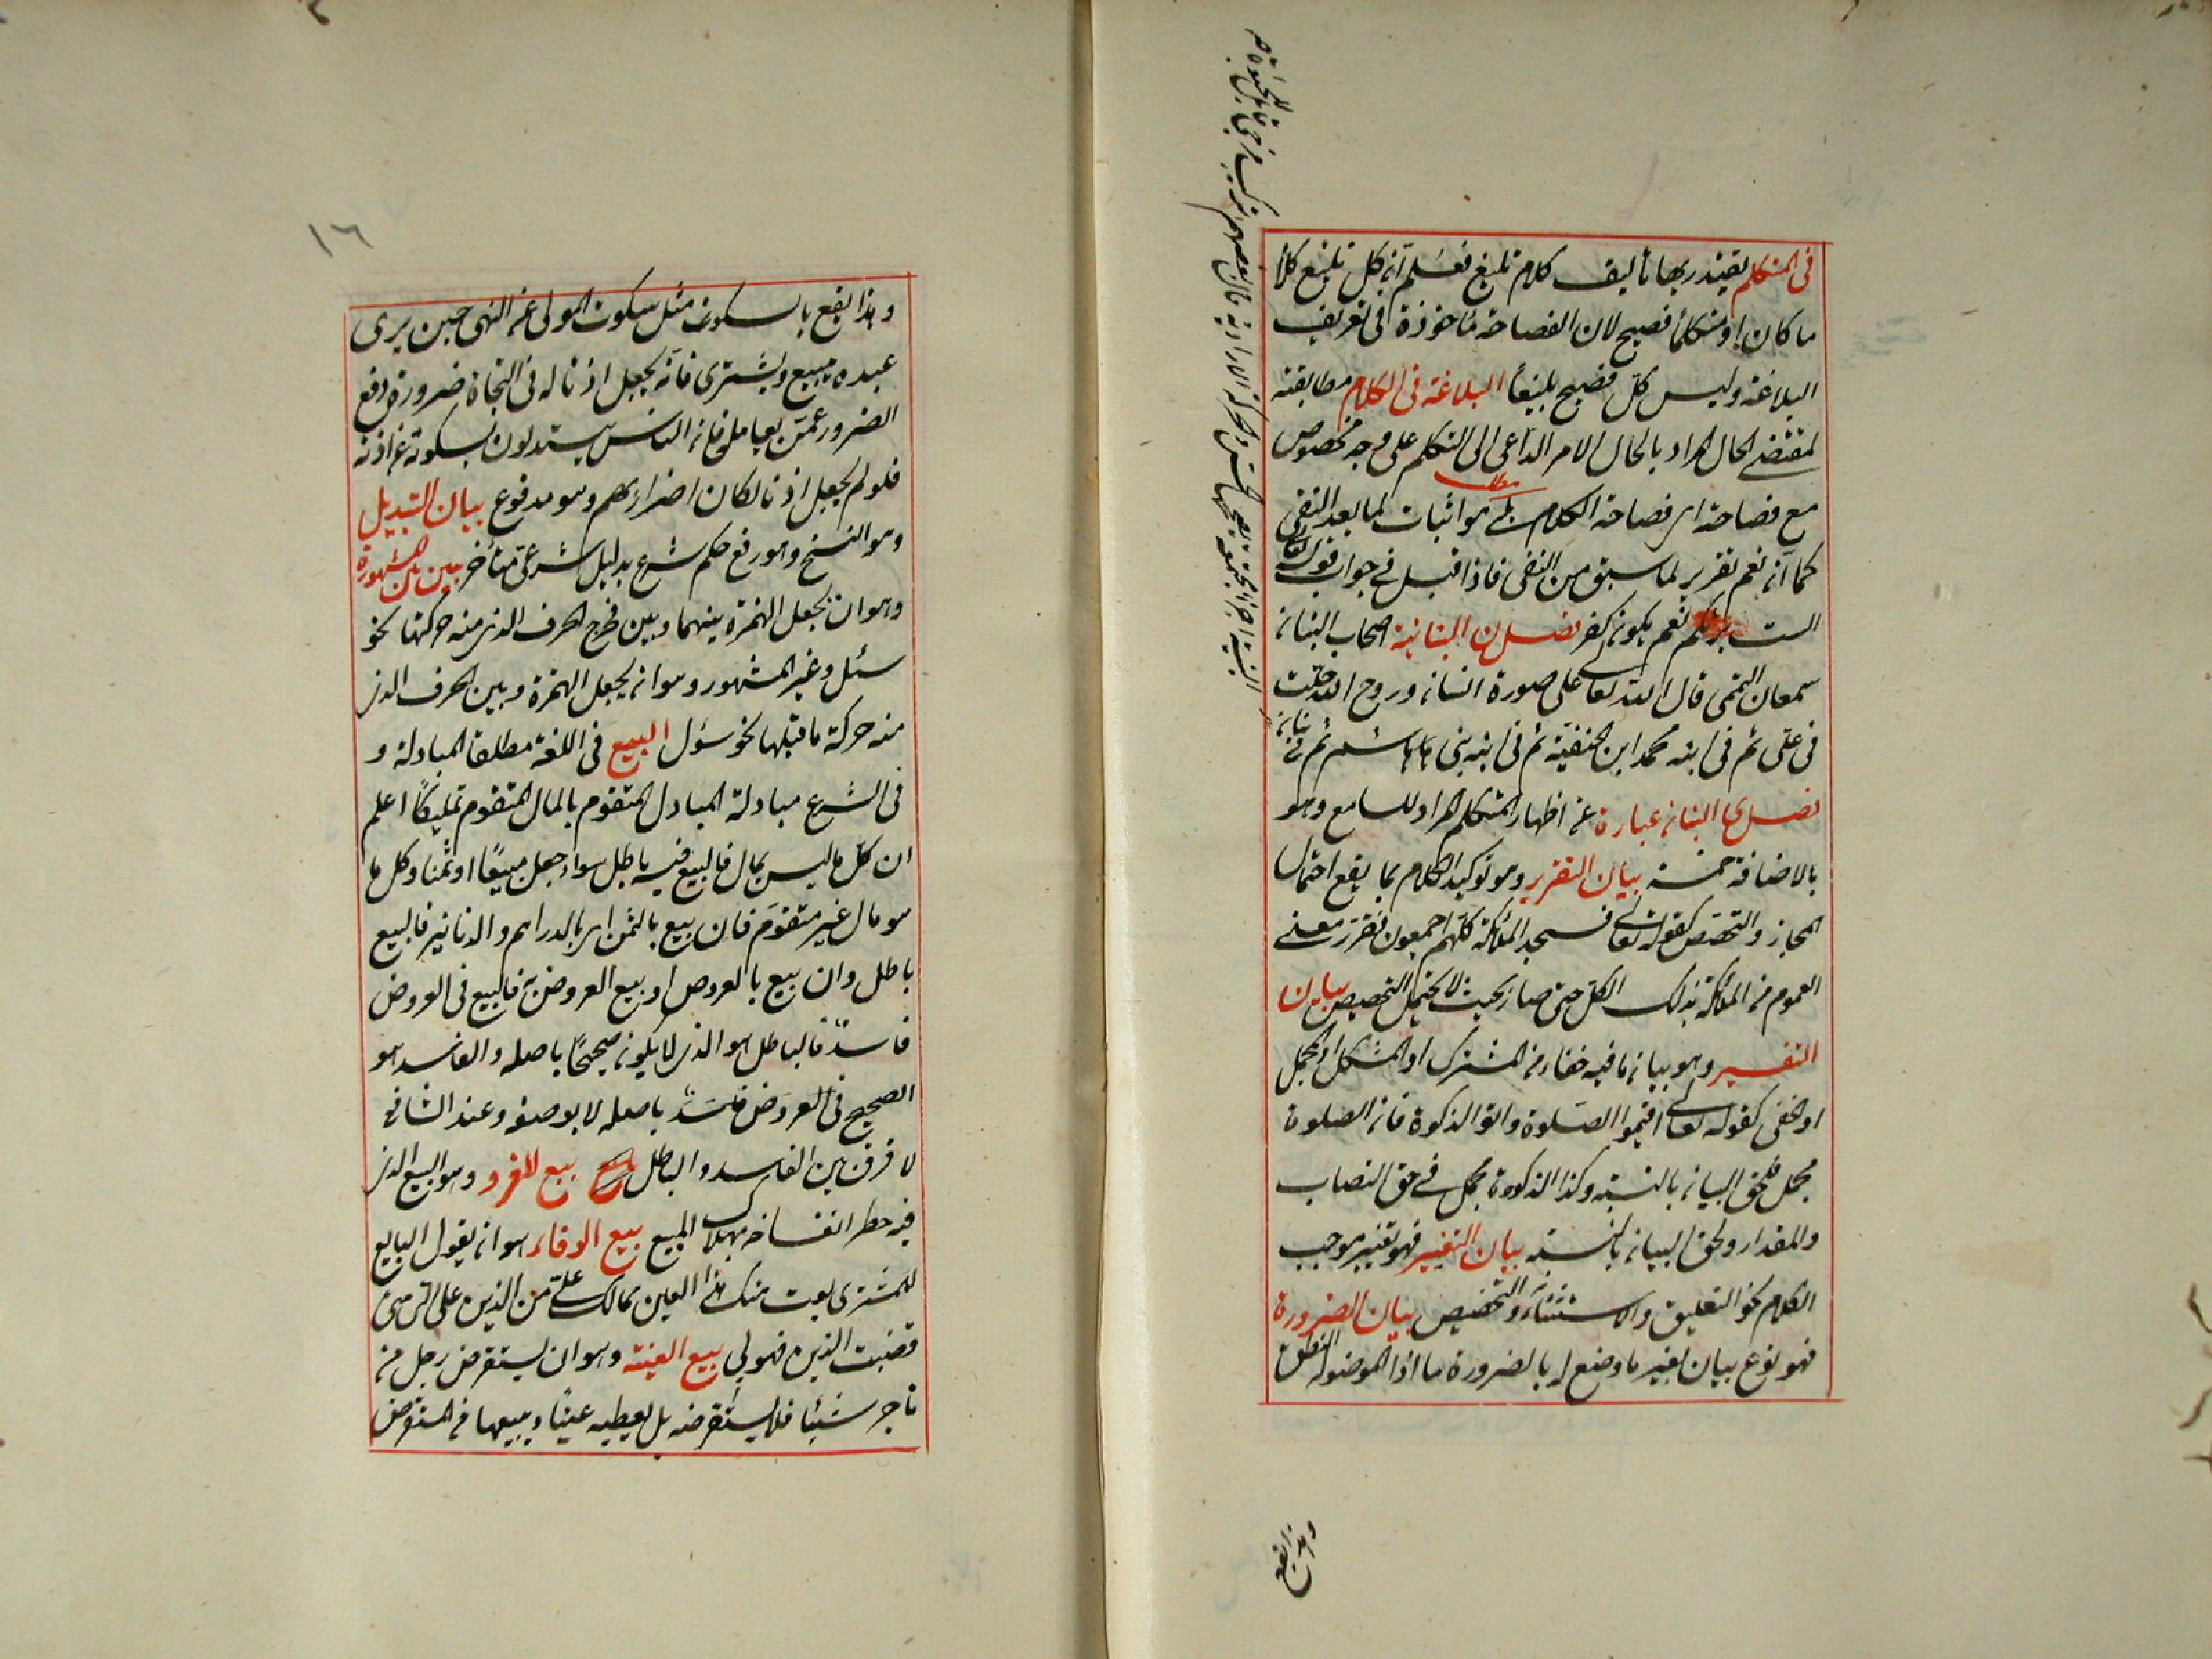 فى المتكلم يقتدر بها تأليف كلام بليغ فعلم انه كل بليغ كلاما
ما كان او متكلما فصيح لان الفصاحة مأخوذة فى تعريف
البلاغة وليس كل فصيح بليغا البلاغة فى الكلام مطابقته
لمقتضى الحال المراد بالحال الامر الداعى الى التكلم على وجه مخصوص
مع فصاحته اى فصاحة الكلام بلى هو اثبات لما بعد النفى
كما انه نعم تقرير لما سبق من النفى فاذا قيل فى جواب قوله تعالى
الست بربكم نعم يكون كفرا فصل ن البنانية اصحاب البنان
سمعان التيمى قال الله تعالى على صورة انسان وروح الله حلت
فى على ثم فى ابنه محمد ابن الحنفية ثم فى ابنه بنى هاشم ثم فى بنان
فصل ى البيان عبارة عن اظهار المتكلم المراد للسامع وهو
بالاضافة خمسة بيان التقرير وهو توكيد الكلام بما يقع احتمال
المجاز والتخصص كقوله تعالى فسجد الملئكة كلهم اجمعون فقرر معنى
العموم من الملئكة بذلك الكل حتى صار بحيث لا يحتمل التخصيص بيان
التفسير وهو بيان ما فيه خفاء من المشترك او المشكل او المجمل
او الخفى كقوله تعالى اقيموا الصلوة واتوا الزكوة فان الصلوة
مجمل فلحق البيان بالسنة وكذا الزكوة مجمل فى حق النصاب
والمقدار ولحق البيان بالسنة بيان التغيير فهو تغيير موجب
الكلام نحو التعليق والاستثناء والتخصيص بيان الضرورة
فهو نوع بيان بغير ما وضع له بالضرورة ما اذا الموضوله النطق
وهذا يقع
١٦
وهذا يقع بالسكوت مثل سكوت المولى عن النهى حين يرى
عبده يبيع ويشترى فانه يجعل اذنا له فى التجاة ضرورة دفع
الضرور عمن يعامله فان الناس يستدلون بسكوته عن اذنه
فلو لم يجعل اذنا لكان اضرارا بهم وهو مدفوع بيان التبديل
وهو النسخ وهو رفع حكم شرع بدليل شرعى متأخر بين بين المشهورة
وهو ان يجعل الهمزة بينهما وبين مخرج الحرف الذى منه حركتها نحو
سئل وغير المشهور وهو ان يجعل الهمزة وبين الحرف الذى
منه حركة ما قبلها نحو سؤل البيع فى اللغة مطلق المبادلة و
فى الشرع مبادلة المبادل المتقوم بالمال المتقوم تمليكا اعلم
ان كل ما ليس بمال فالبيع فيه باطل سواء جعل مبيعا او ثمنا وكل ما
هو مال غير متقوم فان بيع بالثمن اى بالدراهم والدنانير فالبيع
باطل وان بيع بالعروض او بيع العروض به فالبيع فى العروض
فاسد فالباطل هو الذى لا يكون صحيحا باصله والفاسد هو
الصحيح فى العروض فاسد باصله لا بوصفه وعند الشافعى
لا فرق بين الفاسد والباطل بيع للغرر وهو البيع الذى
فيه خطر انفساخه بهلاك المبيع بيع الوفاء هو ان يقول البايع
للمشترى بعت منك هذا العين بمالك على من الدين على انى متى
قضيت الدين فهو لى بيع العينة وهو ان يستقرض رجل من
تاجر شيئا فلا يستقرضه بل يعطيه عينا ويبيعها من المستقرض